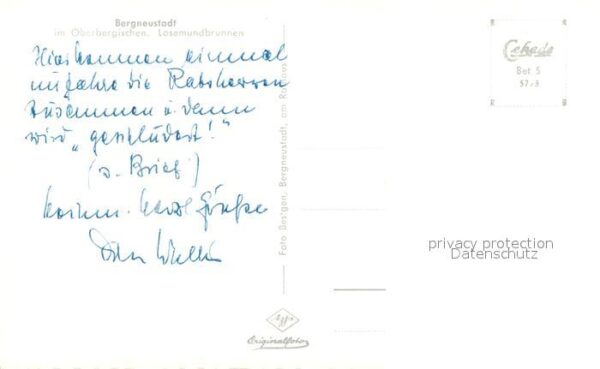 Bergneustadt
im Oberbergischen. Losemundbrunnen
Hier kommen einmal
im Jahre die Ratsherren
zusammen u. dann
wird „geschludert!“
(s. Brief)
Foto Bestgen, Bergneustadt, am Rathaus
Cekade
Bet 5
privacy protection
Datenschutz
Agfa
Originalfoto